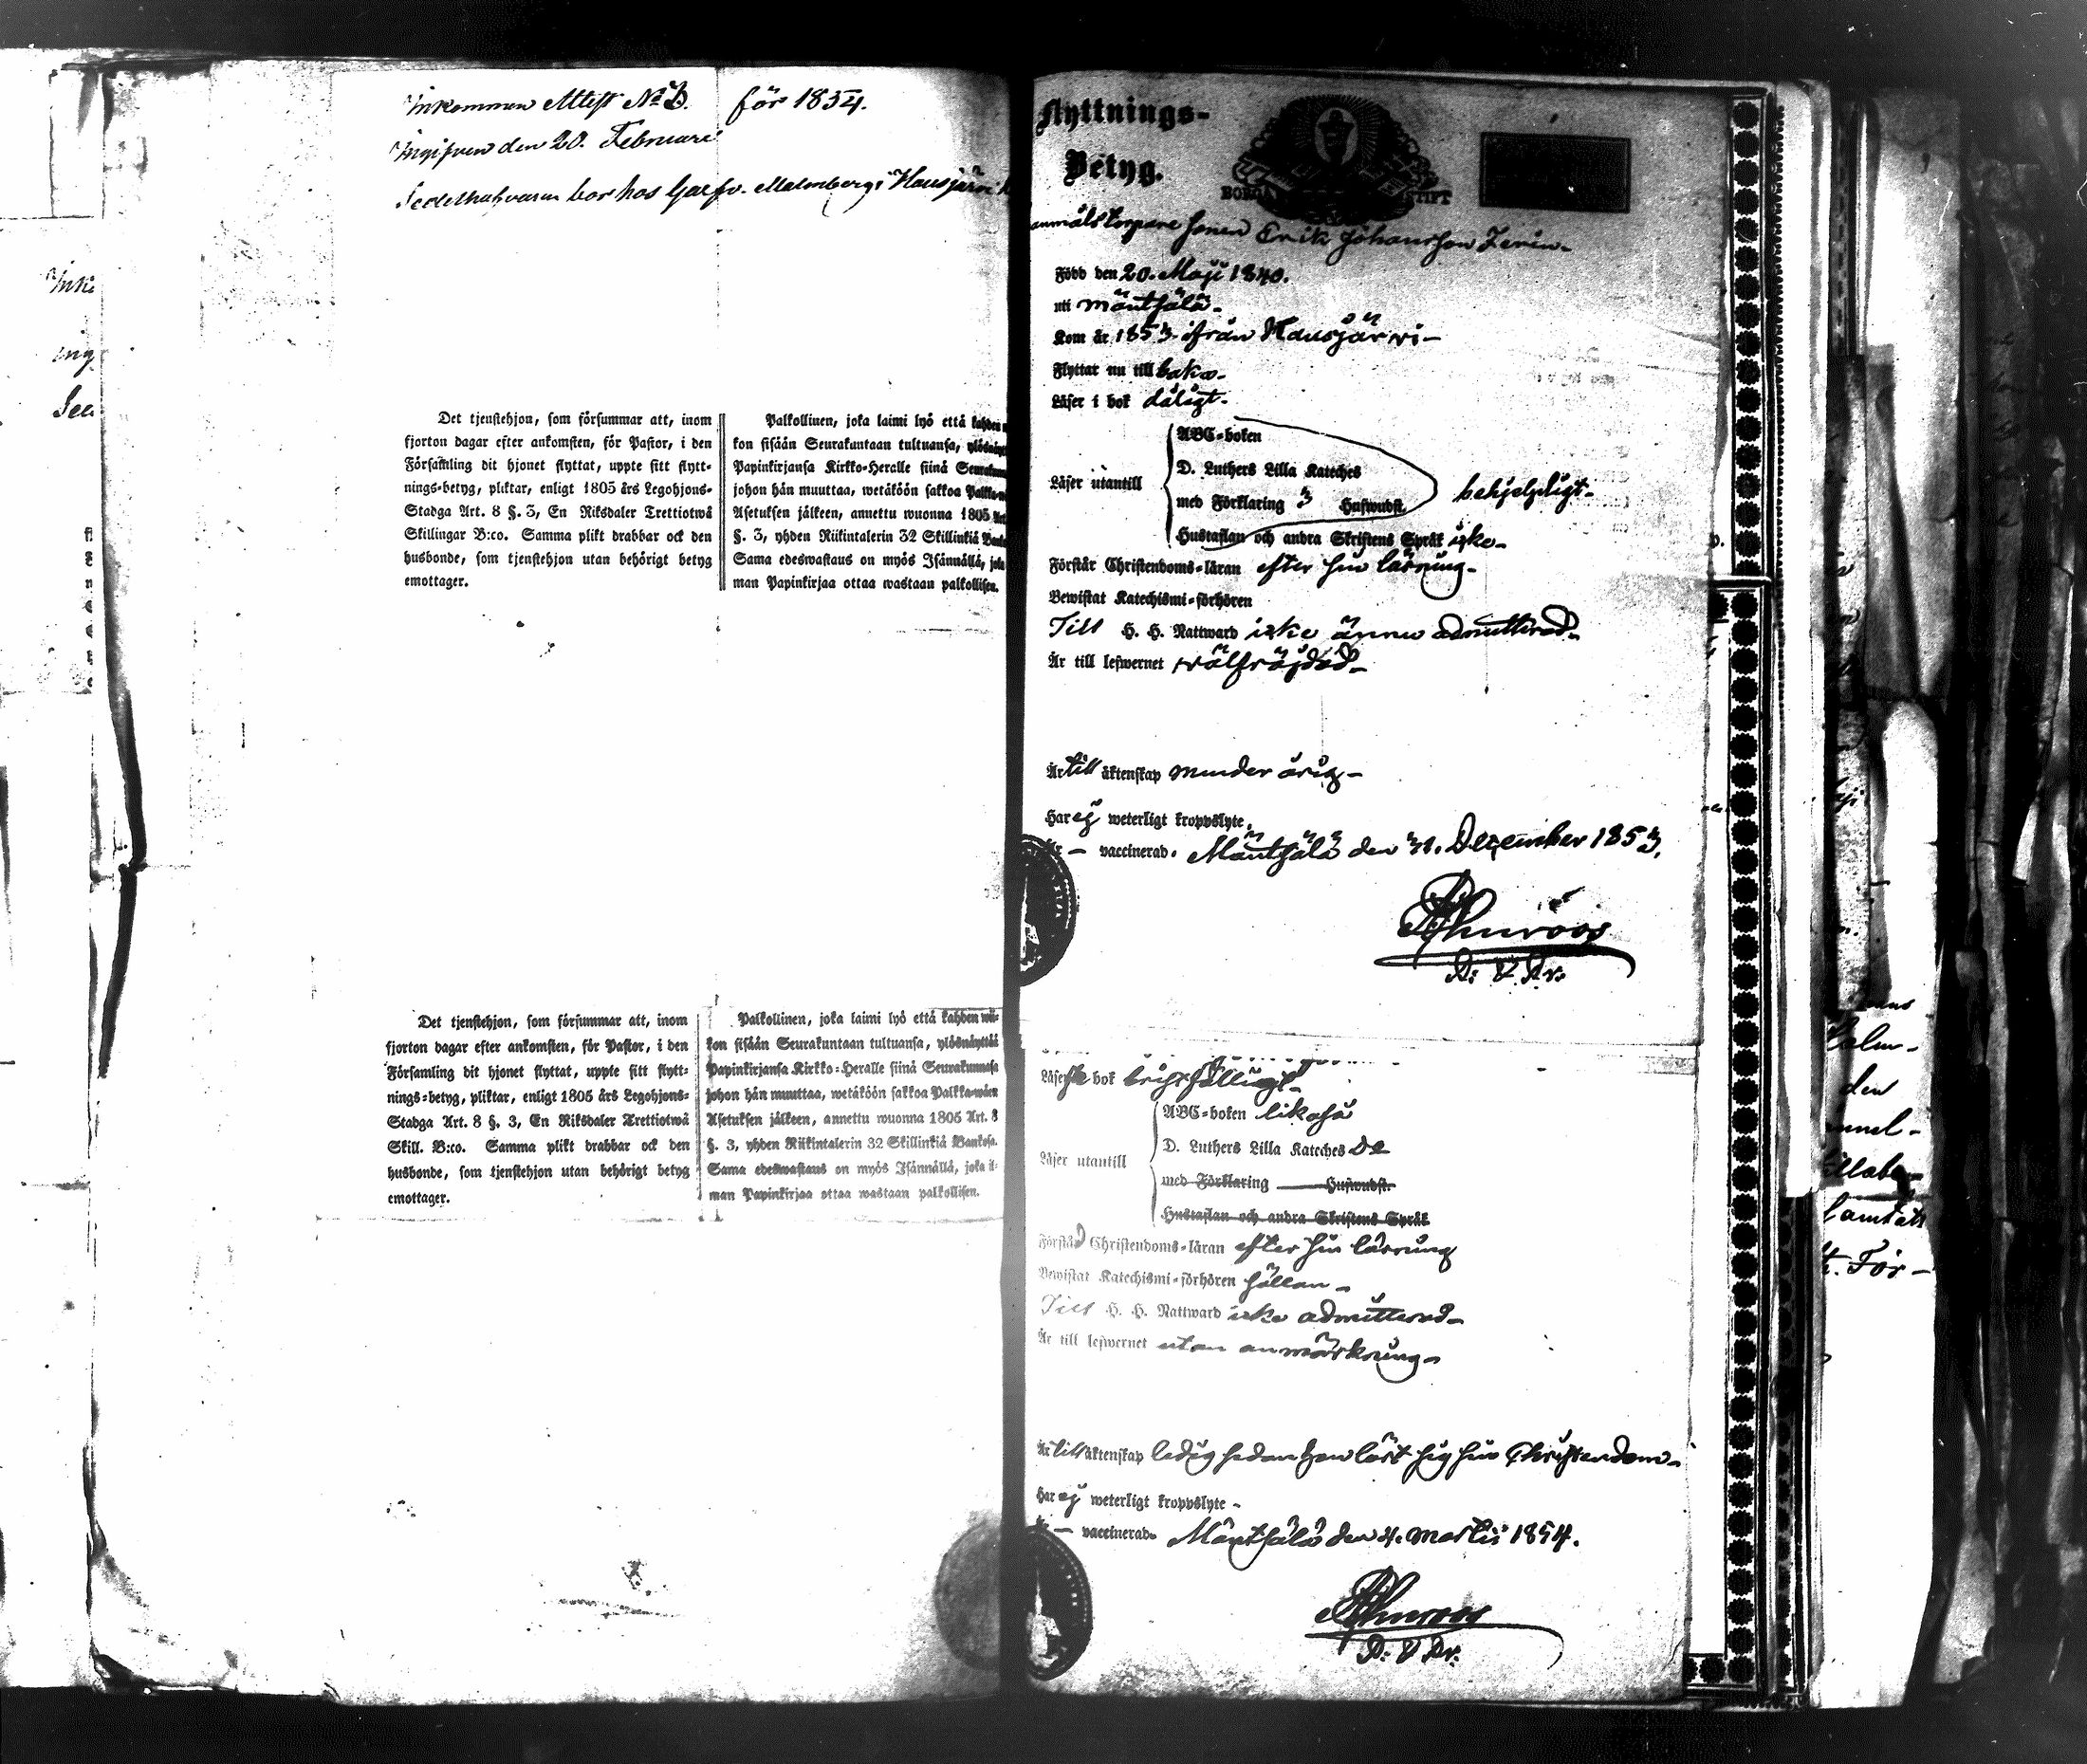 Inkommen Attest No 3. för 1854.
Ingifven den 20. Februari
Sedelhafvaren bor hos Garfv. Malmberg i Hausjärvi
Det tjenstehjon, som försummar att, inom
fjorton dagar efter ankomsten, för Pastor, i den
Församling dit hjonet flyttat, uppte sitt flytt-
nings-betyg, pliktar, enligt 1805 års Legohjons-
Stadga Art. 8 §. 3, En Riksdaler Trettiotwå
Skillingar B:co. Samma plikt drabbar ock den
husbonde, som tjenstehjon utan behörigt betyg
emottager.
Palkollinen, joka laimi lyö että kahden
kon sisään Seurakuntaan tultuansa, ylösnäyt
Papinkirjansa Kirkko-Heralle siinä Seurakun
johon hän muuttaa, wetäköön sakkoa Palkka-
Asetuksen jälkeen, annettu wuonna 1805 Art
§. 3, yhden Riikintalerin 32 Skillinkiä Banko
Sama edeswastaus on myös Isännällä, joka
man Papinkirjaa ottaa wastaan palkollisen.
Det tjenstehjon, som försummar att, inom
fjorton dagar efter ankomsten, för Pastor, i den
Församling dit hjonet flyttat, uppte sitt flytt-
nings-betyg, pliktar, enligt 1805 års Legohjons-
Stadga Art. 8 §. 3, En Riksdaler Trettiotwå
Skill. B:co. Samma plikt drabbar ock den
husbonde, som tjenstehjon utan behörigt betyg
emottager.
Palkollinen, joka laimi lyö että kahden wii-
kon sisään Seurakuntaan tultuansa, ylösnäyttää
Papinkirjansa Kirkko-Heralle siinä Seurakunnasa
johon hän muuttaa, wetäköön sakkoa Palkka-wäen
Asetuksen jälkeen, annettu wuonna 1805 Art. 8
§. 3, yhden Riikintalerin 32 Skillinkiä Bankosa.
Sama edeswastaus on myös Isännällä, joka il-
man Papinkirjaa ottaa wastaan palkollisen.
Flyttnings-
Betyg.
BORGÅ STIFT
torpare sonen Erik Johansson
Född den 20. Maji 1840.
uti Mäntsälä.
Kom år 1853 ifrån Hausjärvi
Flyttar nu till baka.
Läser i bok dåligt.
Läser utantill
ABC-boken
D. Luthers Lilla Kateches
med Förklaring 3 Huswudst. behjelpligt.
Hustaflan och andra Skriftens Språk icke
Förstår Christendoms-läran efter sin läsning
Bewistat Katechismi-förhören
Till H. H. Nattward icke ännu admitterad
Är till lefwernet välfräjdad
Är till äktenskap minderårig
Har ej weterligt kroppslyte.
Är — vaccinerad. Mäntsälä den 31. December 1853.
Läser i bok
ABC-boken likaså
D. Luthers Lilla Kateches do
Läser utantill
med Förklaring Huswudst.
Hustaflan och andra Skriftens Språk
Förstår Christendoms-läran efter sin läsning
Bewistat Katechismi-förhören sällan
Till H. H. Nattward icke admitterad
Är till lefwernet utan anmärkning
Är till äktenskap ledig sedan han lärt sig sin Christendom
Har ej weterligt kroppslyte
vaccinerad. Mäntsälä den 4. Martii 1854.